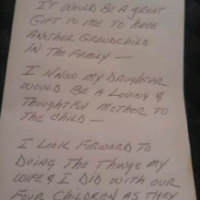 IT WOULD BE A GREAT
GIFT TO ME TO HAVE
ANOTHER GRANDCHILD
IN THE FAMILY —
I KNOW MY DAUGHTER
WOULD BE A LOVING &
THOUGHTFUL MOTHER TO
THE CHILD —
I LOOK FORWARD TO
DOING THE THINGS MY
WIFE & I DID WITH OUR
FOUR CHILDREN AS THEY